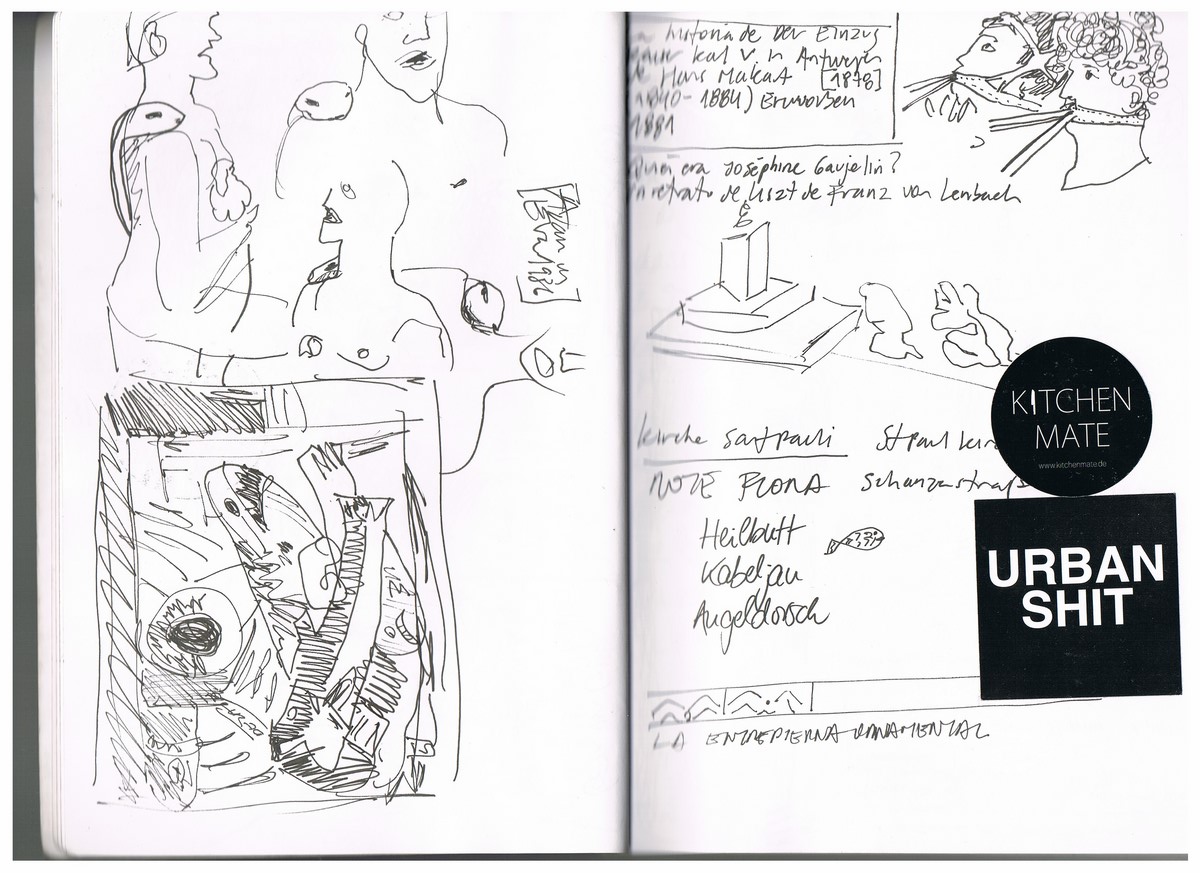 historia de der Einzug
Kaiser Karl V. in Antwerpen
de Hans Makart [1878]
1840-1884) Erworben
1881
Quién era Joséphine Gaujelin?
retrato de Liszt de Franz von Lenbach
kirche Sankt pauli St Paul
ROTE FLORA Schanzenstraße
Heilbutt
Kabeljau
Angeldorsch
LA ENTREPIERNA ORNAMENTAL
KITCHEN
MATE
www.kitchenmate.de
URBAN
SHIT